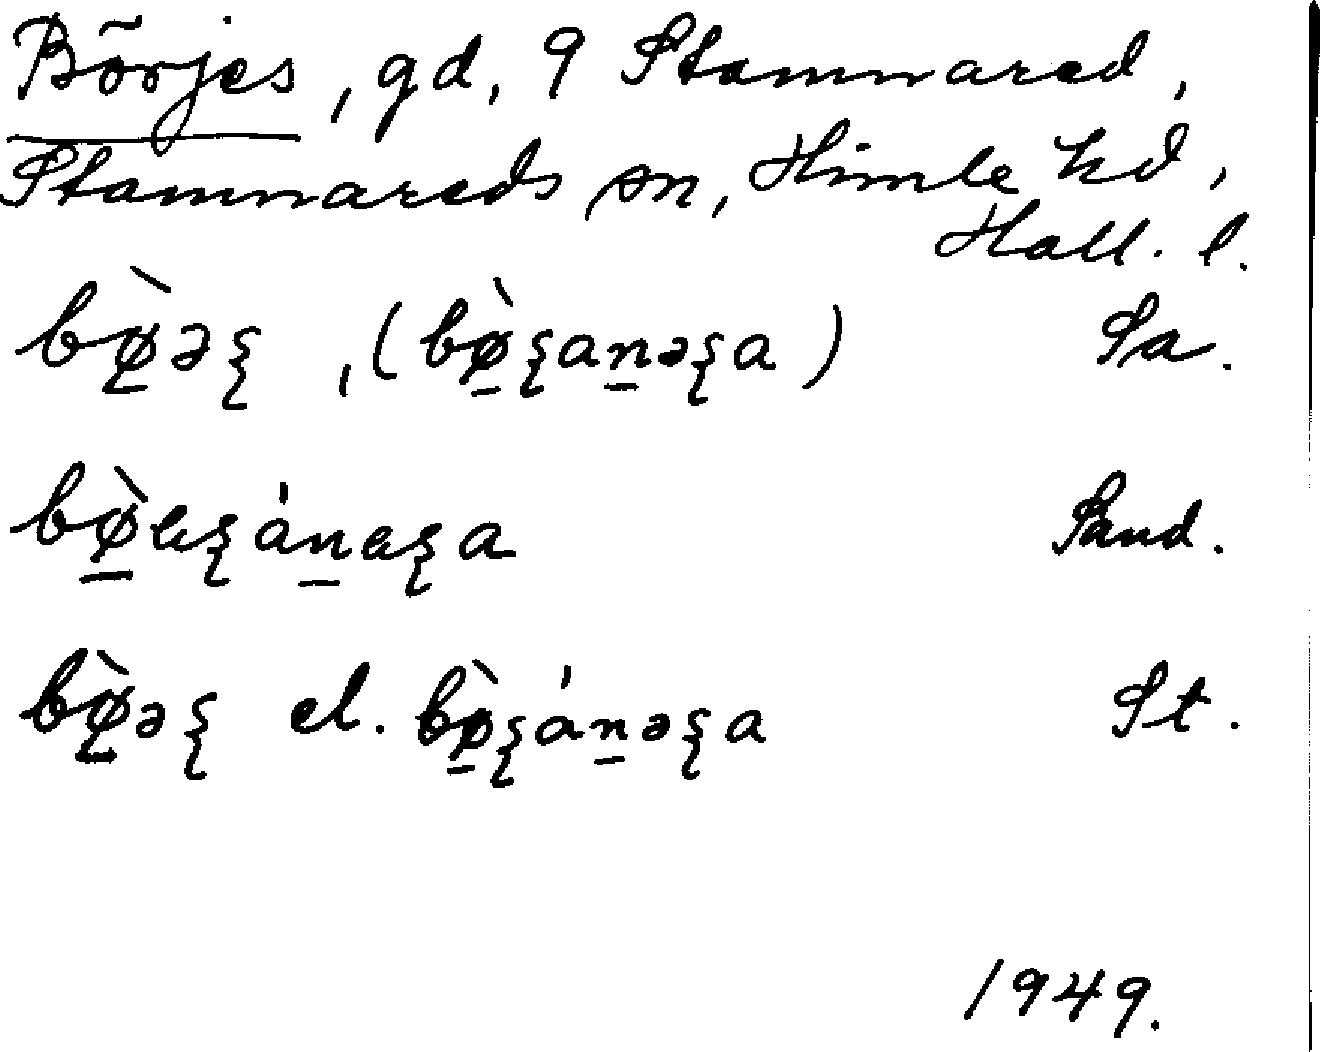 Börjes, gd, 9 Stamnared,
Stamnareds sn, Himle hd,
Hall. l.
bø̱̀əʂ, (bø̱̀ʂaṉəʂa) Sa.
bø̱̀aʂáṉaʂa Sand.
bø̱̀əʂ el. bø̱̀ʂáṉəʂa St.
1949.